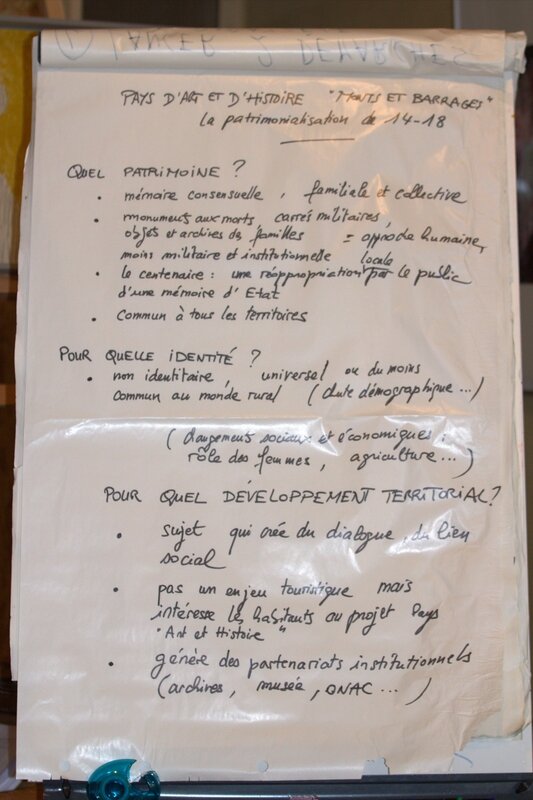 PAYS D'ART ET D'HISTOIRE "MONTS ET BARRAGES"
La patrimonialisation de 14-18
QUEL PATRIMOINE ?
• mémoire consensuelle, familiale et collective
• monuments aux morts carrés militaires
objets et archives des familles = approche humaine,
moins militaire et institutionnelle locale
• le centenaire : une réappropriation par le public
d'une mémoire d'Etat
• commun à tous les territoires
POUR QUELLE IDENTITÉ ?
• non identitaire, universel ou du moins
commun au monde rural (chute démographique...)
(changements sociaux et économiques :
rôle des femmes, agriculture...)
POUR QUEL DÉVELOPPEMENT TERRITORIAL ?
• sujet qui crée du dialogue, du lien
social
• pas un enjeu touristique mais
intéresse les habitants au projet Pays
"Art et Histoire"
• génère des partenariats institutionnels
(archives, musée, ONAC...)